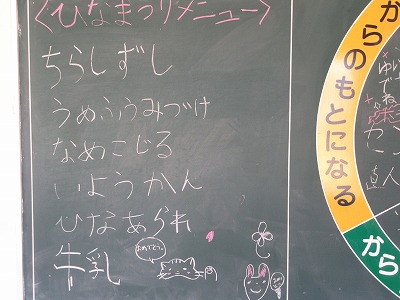 <ひなまつりメニュー>
ちらしずし
うめふうみづけ
なめこじる
いよかん
ひなあられ
牛乳
おめでとう。
からのもとになる
から